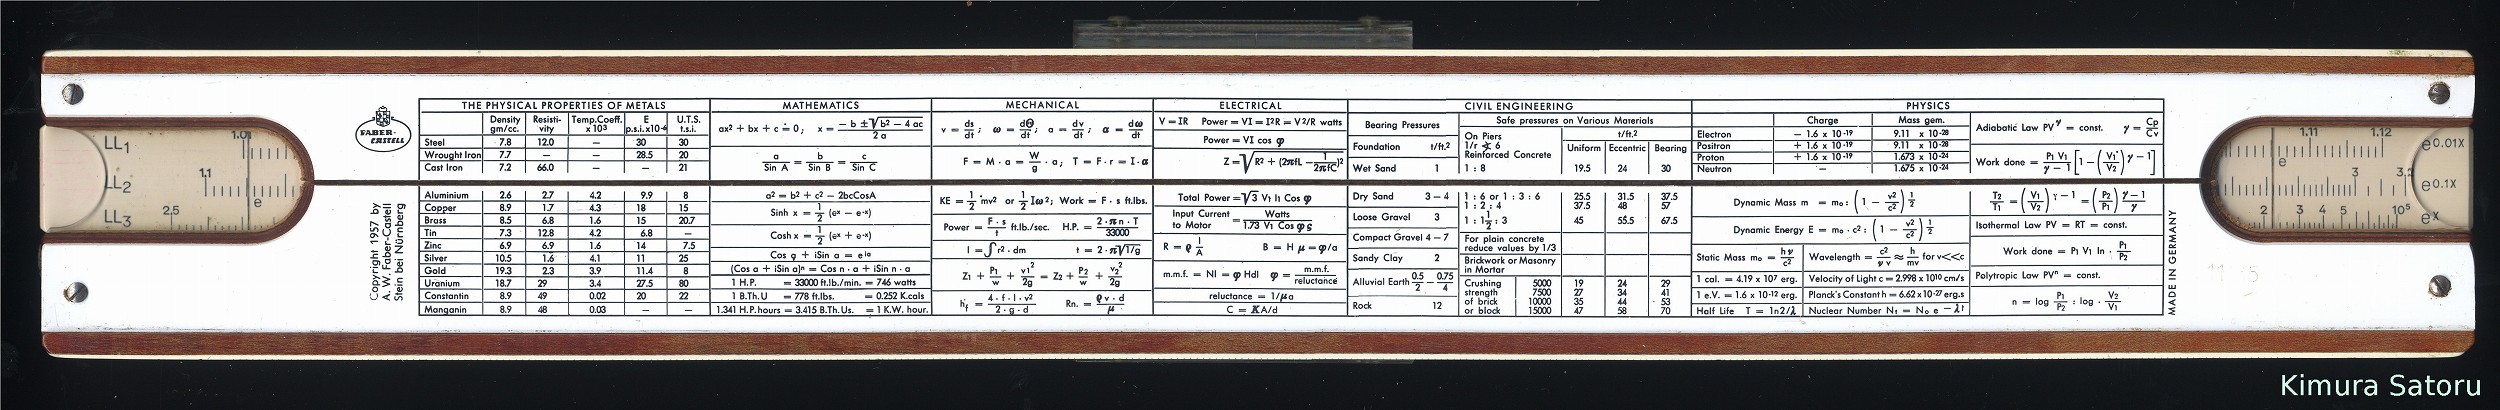 FABER-CASTELL
Copyright 1957 by
A. W. Faber-Castell
Stein bei Nürnberg
LL1 1.01
LL2 1.1 e
LL3 2.5
THE PHYSICAL PROPERTIES OF METALS
Density gm/cc. Resisti-vity Temp.Coeff. x 10³ E p.s.i.x10-6 U.T.S. t.s.i.
Steel 7.8 12.0 — 30 30
Wrought Iron 7.7 — — 28.5 20
Cast Iron 7.2 66.0 — — 21
Aluminium 2.6 2.7 4.2 9.9 8
Copper 8.9 1.7 4.3 18 15
Brass 8.5 6.8 1.6 15 20.7
Tin 7.3 12.8 4.2 6.8 —
Zinc 6.9 6.9 1.6 14 7.5
Silver 10.5 1.6 4.1 11 25
Gold 19.3 2.3 3.9 11.4 8
Uranium 18.7 29 3.4 27.5 80
Constantin 8.9 49 0.02 20 22
Manganin 8.9 48 0.03 — —
MATHEMATICS
ax² + bx + c = 0; x = (— b ± √b² – 4 ac) / 2 a
a / Sin A = b / Sin B = c / Sin C
a² = b² + c² – 2bcCosA
Sinh x = 1/2 (eˣ – e⁻ˣ)
Cosh x = 1/2 (eˣ + e⁻ˣ)
(Cos a + iSin a)ⁿ = Cos n·a + iSin n·a
1 H.P. = 33000 ft.lb./min. = 746 watts
1 B.Th.U = 778 ft.lbs. = 0.252 K.cals
1.341 H.P.hours = 3.415 B.Th.Us. = 1 K.W. hour.
MECHANICAL
v = ds/dt; ω = dΘ/dt; a = dv/dt; α = dω/dt
F = M · a = W/g · a; T = F·r = I·α
KE = 1/2 mv² or 1/2 Iω²; Work = F · s ft.lbs.
Power = F·s/t ft.lb./sec. H.P. = 2·πn·T/33000
I = ∫r²·dm t = 2·π√l/g
Z1 + P1/w + v1²/2g = Z2 + P2/w + v2²/2g
hf = 4·f·l·v²/2·g·d Rn. = ϱv·d/μ
ELECTRICAL
V = IR Power = VI = I²R = V²/R watts
Power = VI cos φ
Z = √R² + (2πfL – 1/2πfC)²
Total Power = √3 V1 I1 Cos φ
Input Current to Motor = Watts / 1.73 V1 Cos φ ς
R = ϱ l/A B = H μ = φ/a
m.m.f. = NI = φ Hdl φ = m.m.f./reluctance
reluctance = 1/μa
C = KA/d
CIVIL ENGINEERING
Bearing Pressures
Foundation t/ft.²
Wet Sand 1
Dry Sand 3 – 4
Loose Gravel 3
Compact Gravel 4 – 7
Sandy Clay 2
Alluvial Earth 0.5/2 – 0.75/4
Rock 12
Safe pressures on Various Materials
On Piers
1/r ≮ 6
Reinforced Concrete
t/ft.²
Uniform Eccentric Bearing
1 : 8 19.5 24 30
1 : 6 or 1 : 3 : 6 25.5 31.5 37.5
1 : 2 : 4 37.5 48 57
1 : 1½ : 3 45 55.5 67.5
For plain concrete
reduce values by 1/3
Brickwork or Masonry
in Mortar
Crushing 5000 19 24 29
strength 7500 27 34 41
of brick 10000 35 44 53
or block 15000 47 58 70
PHYSICS
Charge Mass gem.
Electron — 1.6 x 10⁻¹⁹ 9.11 x 10⁻²⁸
Positron + 1.6 x 10⁻¹⁹ 9.11 x 10⁻²⁸
Proton + 1.6 x 10⁻¹⁹ 1.673 x 10⁻²⁴
Neutron — 1.675 x 10⁻²⁴
Dynamic Mass m = m₀: (1 – v²/c²)^1/2
Dynamic Energy E = m₀·c²: (1 – v²/c²)^1/2
Static Mass m₀ = hν/c² Wavelength = c²/νv ≈ h/mv for v<<c
1 cal. = 4.19 x 10⁷ erg. Velocity of Light c = 2.998 x 10¹⁰ cm/s
1 e.V. = 1.6 x 10⁻¹² erg. Planck's Constant h = 6.62 x 10⁻²⁷ erg.s
Half Life T = 1n2/λ Nuclear Number Nt = N₀ e – λt
Adiabatic Law PVᵞ = const. γ = Cp/Cv
Work done = P1 V1/γ – 1 [1 – (V1/V2)γ – 1]
T2/T1 = (V1/V2)γ – 1 = (P2/P1) γ – 1/γ
Isothermal Law PV = RT = const.
Work done = P1 V1 ln · P1/P2
Polytropic Law PVⁿ = const.
n = log P1/P2 : log · V2/V1
MADE IN GERMANY
1.11 1.12 e0.01x
3 e0.1x
2 3 4 5 10⁵ ex
Kimura Satoru